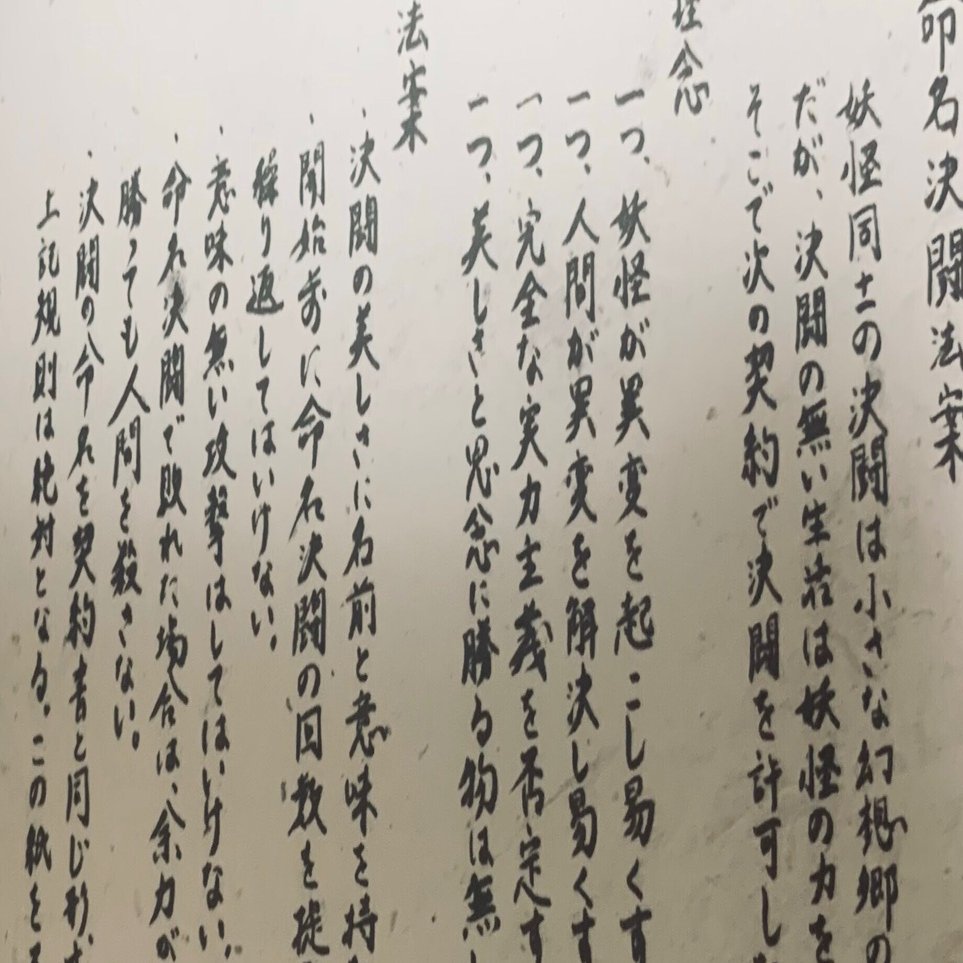 命名決闘法案
妖怪同士の決闘は小さな幻想郷の
だが、決闘の無い生活は妖怪の力を
そこで次の契約で決闘を許可し
理念
一つ、妖怪が異変を起こし易くす
一つ、人間が異変を解決し易くす
一つ、完全な実力主義を否定す
一つ、美しさと思念に勝る物は無
法案
・決闘の美しさに名前と意味を持
・開始前に命名決闘の回数を提
繰り返してはいけない。
・意味の無い攻撃はしてはいけない。
・命名決闘で敗れた場合は、余力が
勝っても人間を殺さない。
・決闘の命名を契約書と同じ形、
上記規則は絶対となる。この紙を